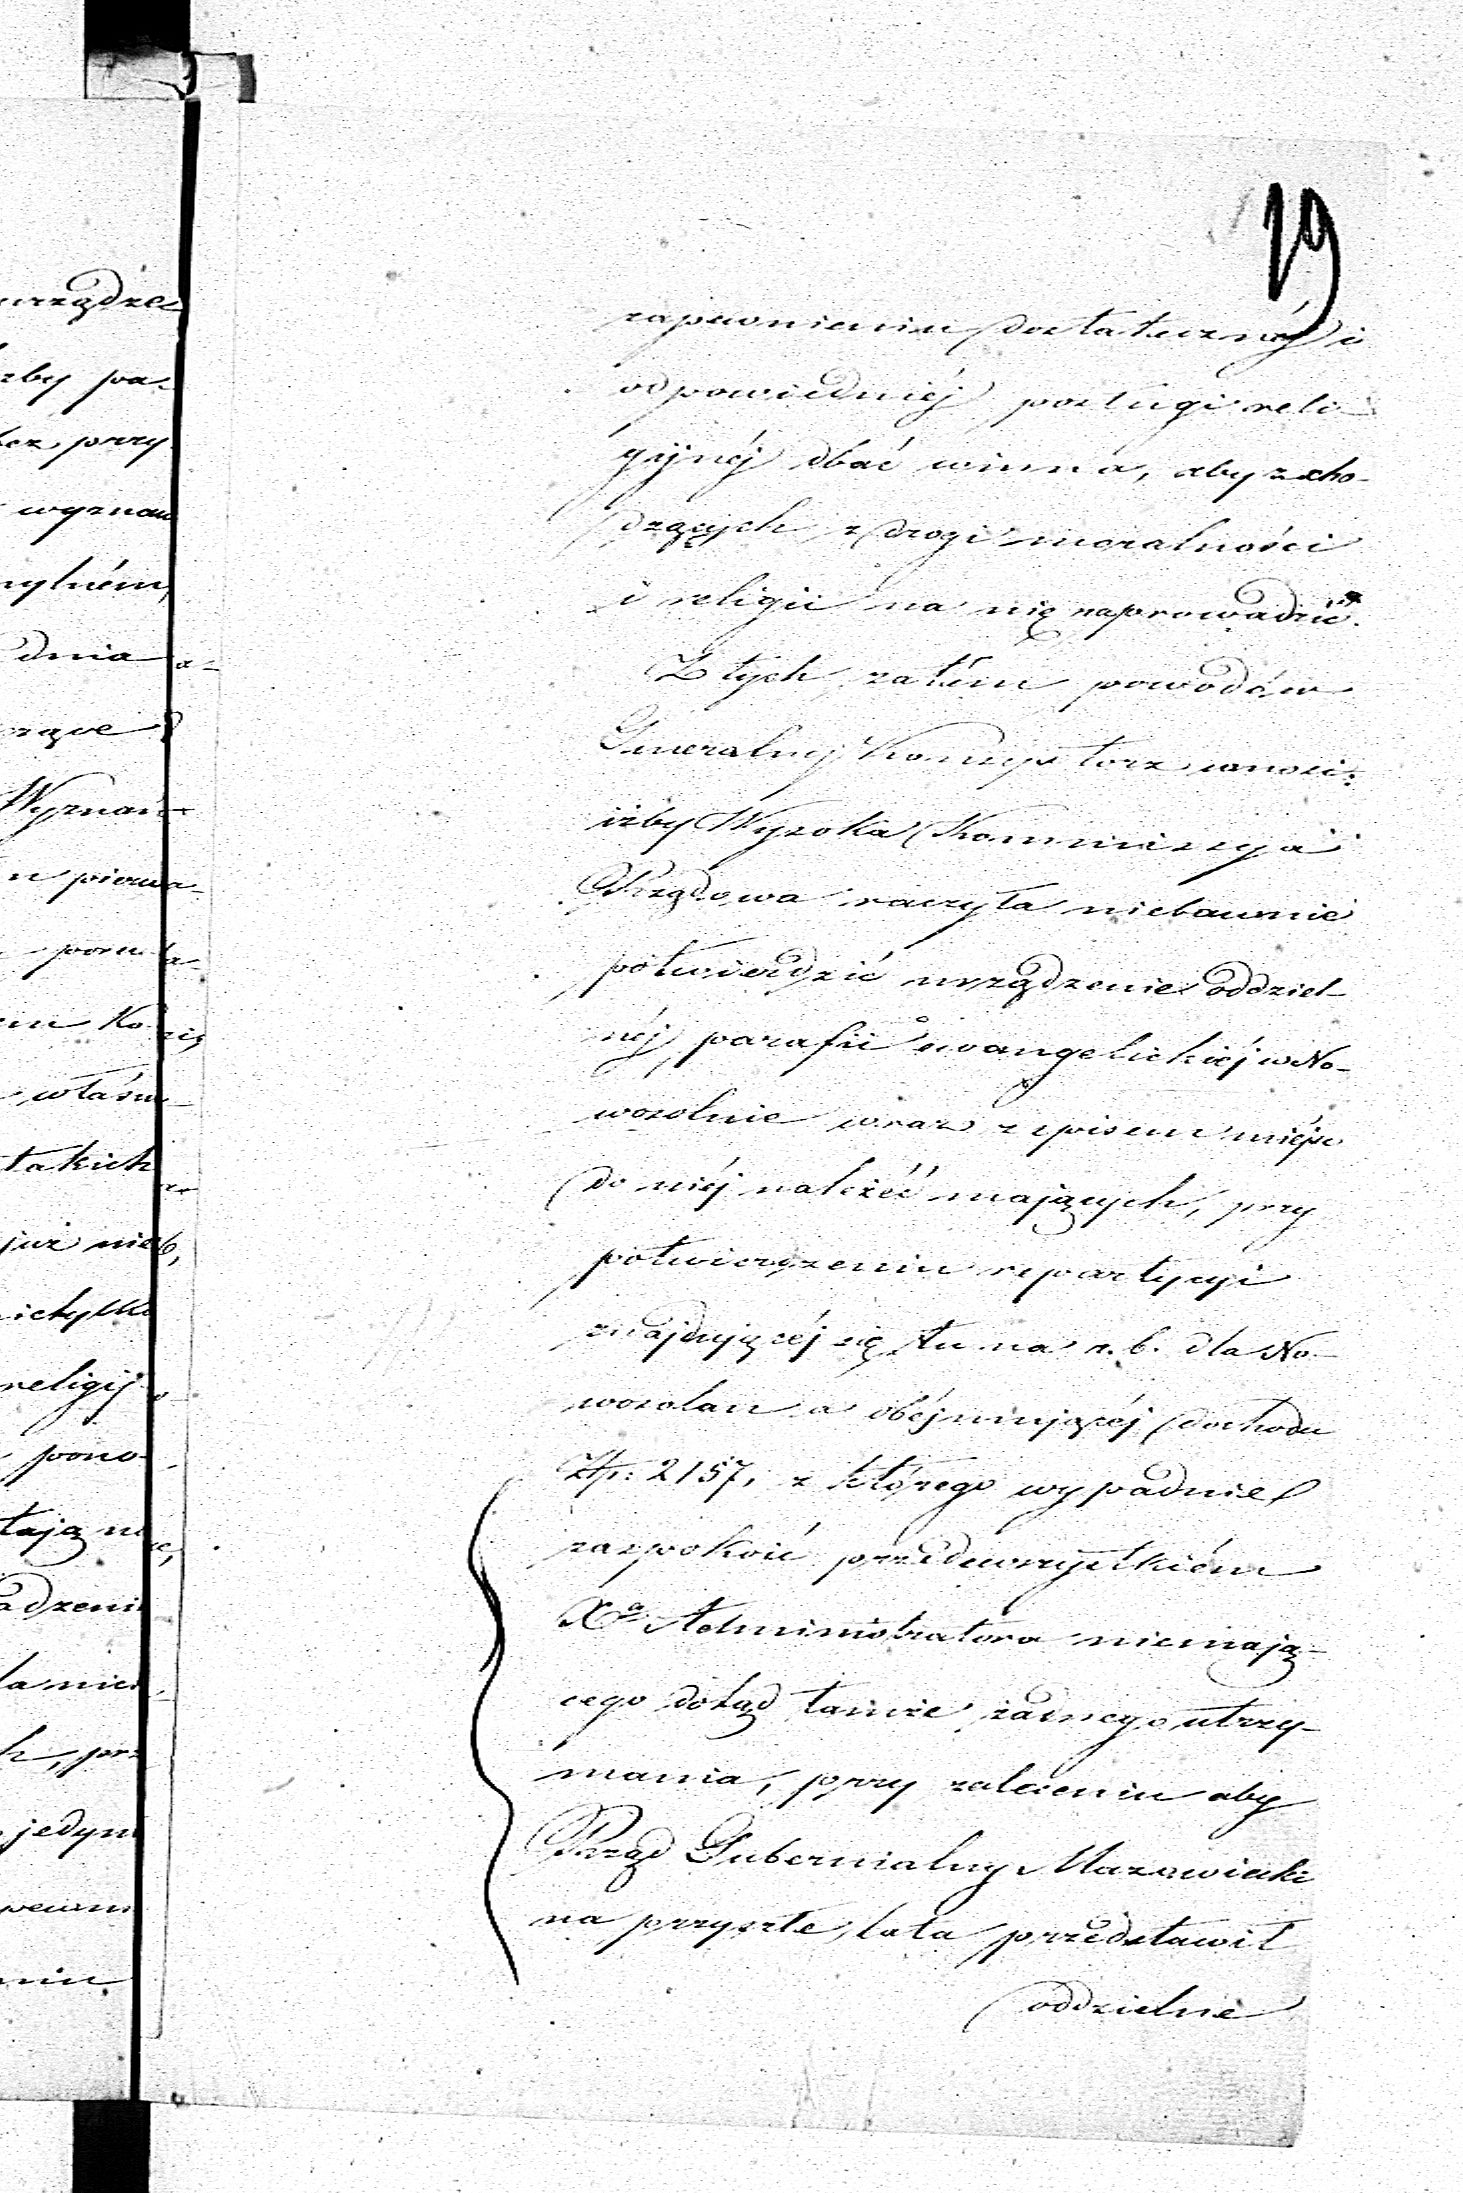 19
zapewnieniu dostatecznéj i
odpowiedniéj posługi reli-
gijnéj dbać winna, aby zcho-
dzących z drogi moralności
i religii na nię naprowadzić.
Z tych zatém powodów
Generalny Konsystorz wnosi:
iżby Wysoka Kommissyja
Rządowa raczyła niebawnie
potwierdzić urządzenie oddziel-
néj parafii ewangelickiéj w No-
wosolnie wraz z spisem miejsc
do niéj należéć mających, przy
potwierdzeniu repartycyi
znajdującéj się tu na r. b. dla No-
wosolan a obéjmującéj dochodu
Złp: 2157, z którego wypadnie
zaspokoić przedewszystkiém
Xa Administratora niemają-
cego dotąd tamże żadnego utrzy-
mania, przy zaleceniu aby
Rząd Gubernialny Mazowiecki
na przyszłe lata przedstawił
oddzielne
urządze
zby pa-
bez przy
wyznan
mylném,
dnia
rzące
Wyznań
pierwa-
własn
takich
już nie
nietylko
religij
pono-
tają
adzeni
la nich
jedyn
pewn
niu